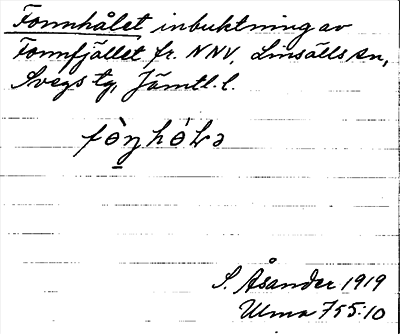 Fonnhålet, inbuktning av
Fonnfjället fr. NNV, Linsälls sn,
Svegs tg, Jämtl. l.
S. Åsander 1919
Ulma 755:10